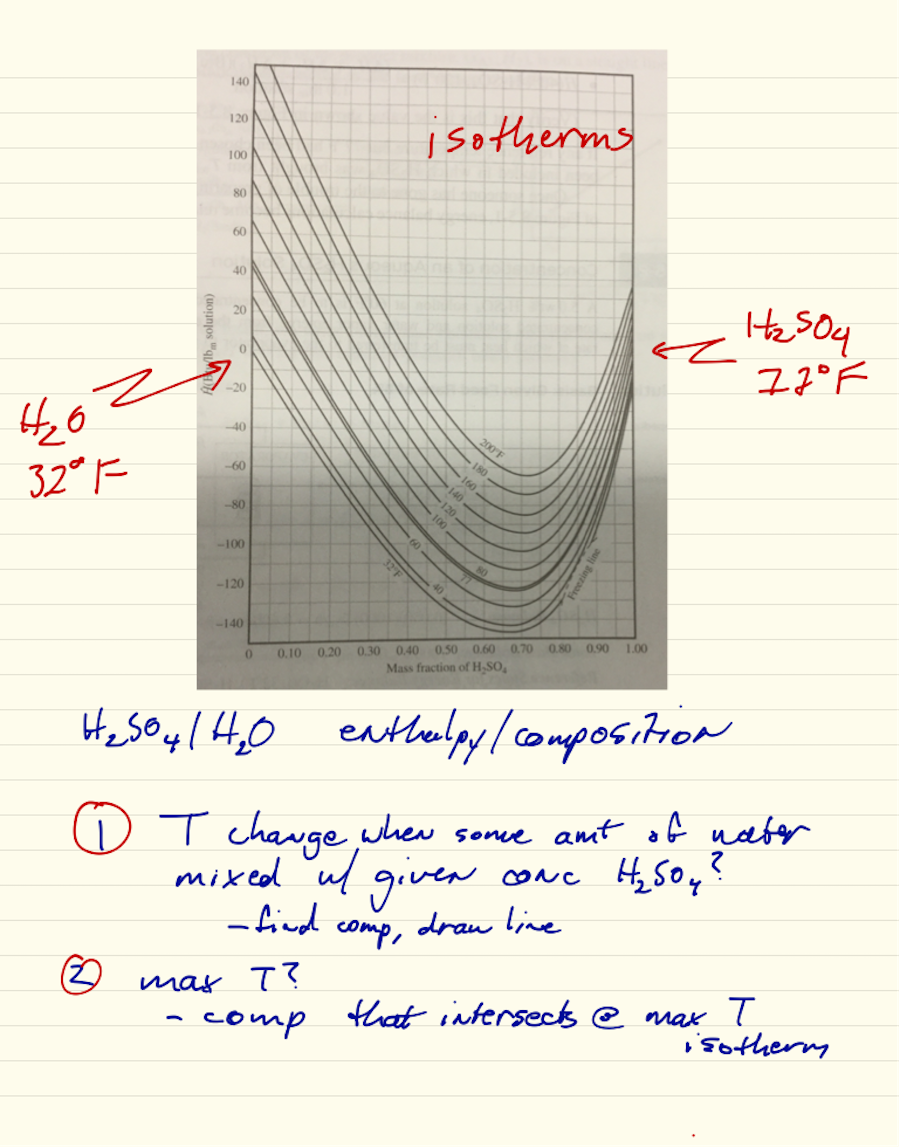 140
120
100
80
60
40
20
0
-20
-40
-60
-80
-100
-120
-140
Ĥ(Btu/lbm solution)
isotherms
200°F
180
160
140
120
100
80
77
60
40
32°F
Freezing line
0 0.10 0.20 0.30 0.40 0.50 0.60 0.70 0.80 0.90 1.00
Mass fraction of H₂SO₄
H₂O
32°F
H₂SO₄
77°F
H₂SO₄/H₂O enthalpy/composition
① T change when some amt of water
mixed w/ given conc H₂SO₄?
- find comp, draw line
② max T?
- comp that intersects @ max T
isotherm